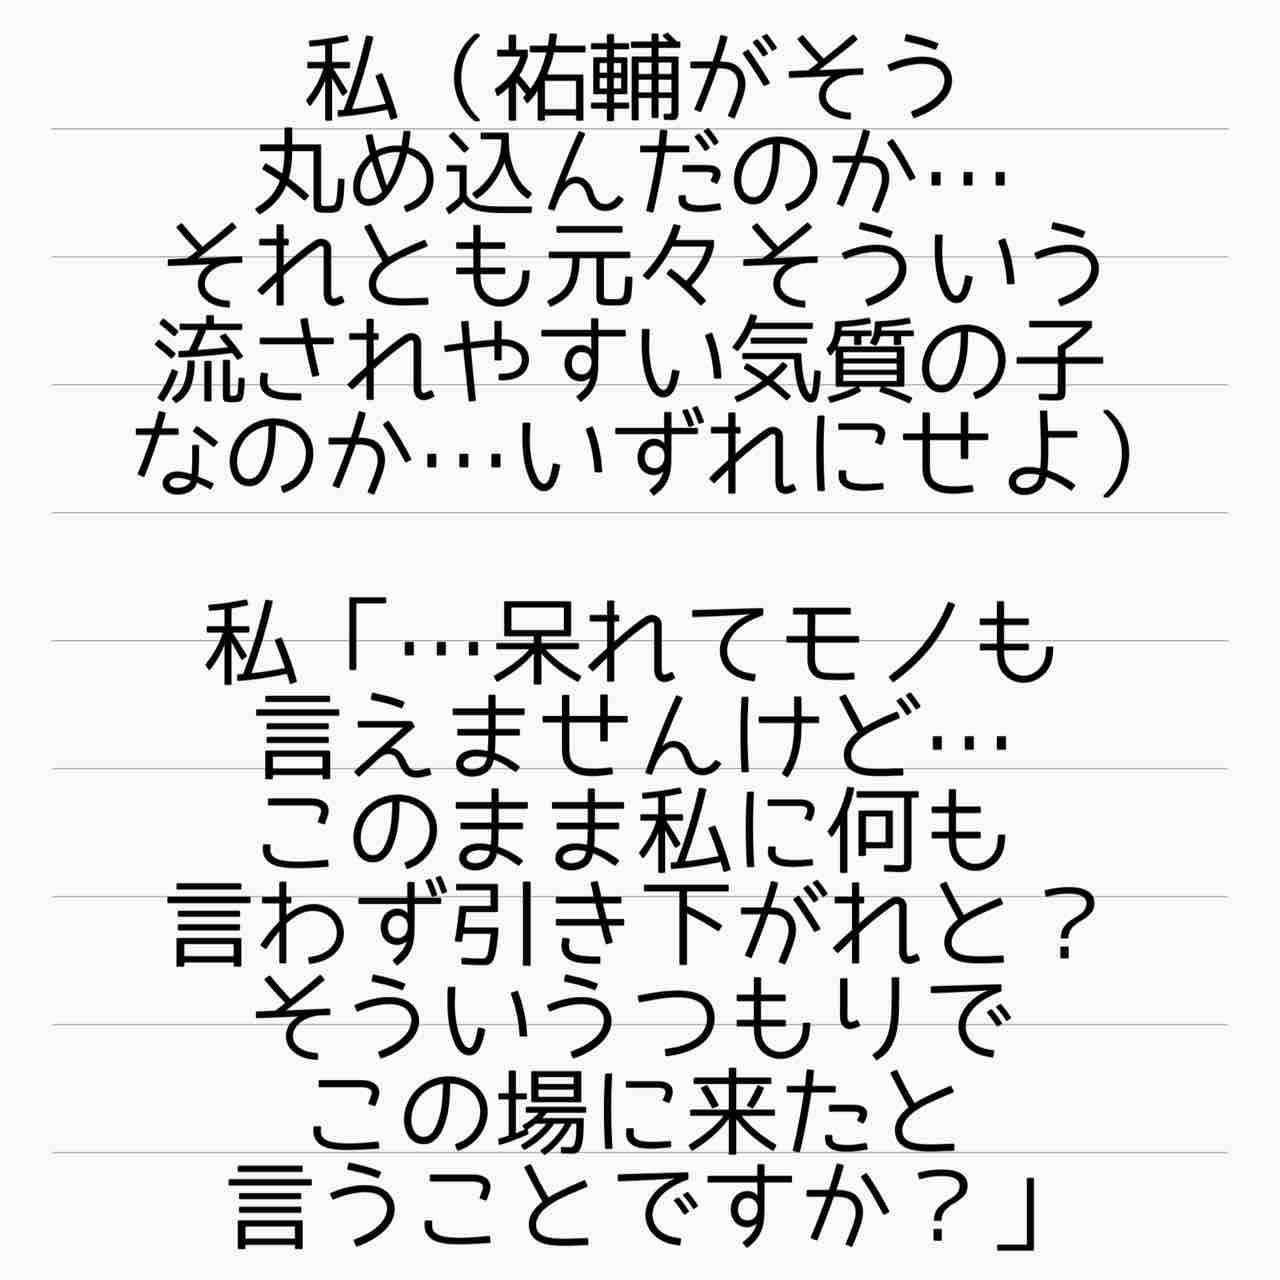 私（祐輔がそう
丸め込んだのか…
それとも元々そういう
流されやすい気質の子
なのか…いずれにせよ）
私「…呆れてモノも
言えませんけど…
このまま私に何も
言わず引き下がれと？
そういうつもりで
この場に来たと
言うことですか？」